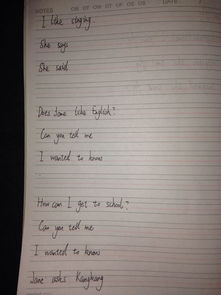 NOTES
DATE
I like singing.
She says
She said
Does Jane like English?
Can you tell me
I wanted to know
How can I get to school?
Can you tell me
I wanted to know
Jane asks Kangkang